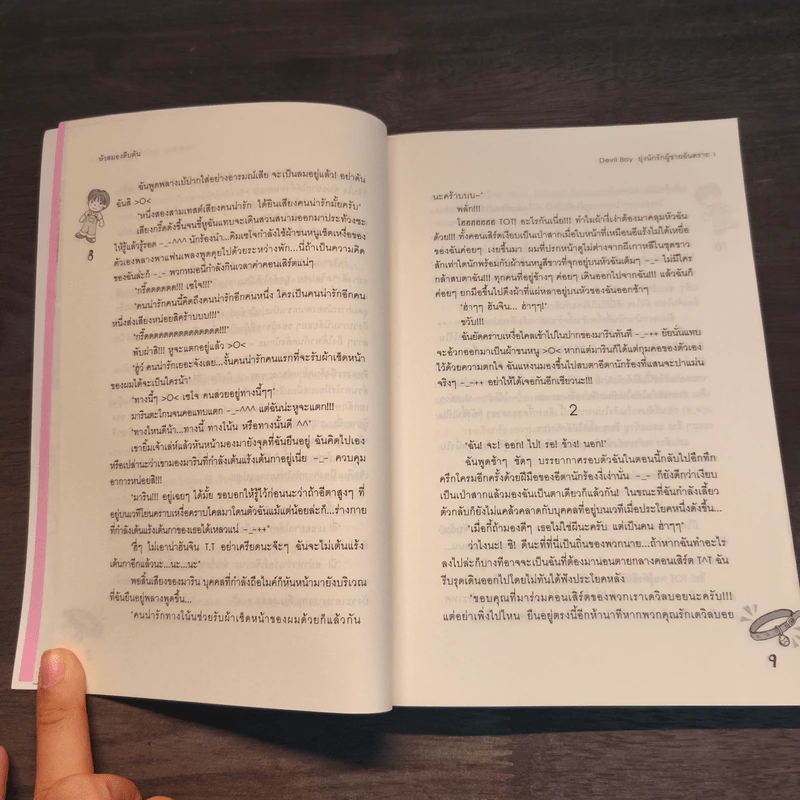 หัวสมองตีบตัน
ฉันพูดพลางเบ้ปากใส่อย่างอารมณ์เสีย จะเป็นลมอยู่แล้ว! อย่าดัน
ฉันสิ >O<
"หนึ่งสองสามเทสต์เสียงคนน่ารัก ได้ยินเสียงคนน่ารักมั้ยครับ"
เสียงกรี๊ดดังขึ้นจนขี้หูฉันแทบจะเดินสวนสนามออกมาประท้วงซะ
ให้รู้แล้วรู้รอด -_-^^^ นักร้องนำ...คิมเซใจกำลังใช้ผ้าขนหนูเช็ดเหงื่อของ
ตัวเองพลางพาแฟนเพลงพูดคุยไปด้วยระหว่างพัก...นี่ถ้าเป็นความคิด
ของฉันล่ะก็ -_- พวกหมอนี่กำลังกินเวลาค่าคอนเสิร์ตแน่ๆ
"กรี๊ดดดดดด!!! เซใจ!!!"
"คนน่ารักคนนี้คิดถึงคนน่ารักอีกคนหนึ่ง ใครเป็นคนน่ารักอีกคน
หนึ่งส่งเสียงหน่อยสิคร้าบบบ!!!"
"กรี๊ดดดดดดดดดดดดดดด!!!"
พับผ่าสิ!!! หูจะแตกอยู่แล้ว >O<
"อู้ว์ คนน่ารักเยอะจังเลย...งั้นคนน่ารักคนแรกที่จะรับผ้าเช็ดหน้า
ของผมได้จะเป็นใครน้า"
"ทางนี้ๆ >O< เซใจ คนสวยอยู่ทางนี้ๆๆ"
มารินตะโกนจนคอแทบแตก -_-^^^ แต่ฉันน่ะหูจะแตก!!!
"ทางไหนดีน้า...ทางนี้ ทางโน้น หรือทางนั้นดี ^^"
เขายิ้มเจ้าเล่ห์แล้วหันหน้ามองมายังจุดที่ฉันยืนอยู่ ฉันคิดไปเอง
หรือเปล่านะว่าเขามองมารินที่กำลังเต้นแร้งเต้นกาอยู่เนี่ย -_- ควบคุม
อาการหน่อยสิ!!!
"มาริน!!! อยู่เฉยๆ ได้มั้ย ขอบอกให้รู้ไว้ก่อนนะว่าถ้าอีตาสูงๆ ที่
อยู่บนเวทีโยนคราบเหงื่อคราบไคลมาโดนตัวฉันแม้แต่น้อยล่ะก็...ร่างกาย
ที่กำลังเต้นแร้งเต้นกาของเธอได้เหลวแน่ -_-++"
"ฮึๆ ไม่เอาน่าฮันจิน T.T อย่าเครียดนะจ๊ะๆ ฉันจะไม่เต้นแร้ง
เต้นกาอีกแล้วนะ...นะ...นะ"
พอสิ้นเสียงของมาริน บุคคลที่กำลังถือไมค์ก็หันหน้ามายังบริเวณ
ที่ฉันยืนอยู่พลางพูดขึ้น...
"คนน่ารักทางโน้นช่วยรับผ้าเช็ดหน้าของผมด้วยก็แล้วกัน
8
Devil Boy ยุ่งนักรักผู้ชายอันตราย 1
นะคร้าบบบ~"
พลั่ก!!!
โฮฮฮฮฮฮฮ TOT! อะไรกันเนี่ย!!! ทำไมผ้าขี้เง่าต้องมาคลุมหัวฉัน
ด้วย!!! ทั้งคอนเสิร์ตเงียบเป็นเป่าสากเมื่อใบหน้าที่เหมือนผีแร้งไม่ได้เหยื่อ
ของฉันค่อยๆ เงยขึ้นมา ผมที่ปรกหน้าดูไม่ต่างจากผีเกาหลีในชุดขาว
สักเท่าใดนักพร้อมกับผ้าขนหนูสีขาวที่จุกอยู่บนหัวฉันเต็มๆ -_- ไม่มีใคร
กล้าสบตาฉัน!!! ทุกคนที่อยู่ข้างๆ ค่อยๆ เดินออกไปจากฉัน!!! แล้วฉันก็
ค่อยๆ ยกมือขึ้นไปดึงผ้าที่แผ่หลาอยู่บนหัวของฉันออกช้าๆ
"ฮ่าๆๆ ฮันจิน... ฮ่าๆๆ!"
ขวับ!!!
ฉันยัดคราบเหงื่อไคลเข้าไปในปากของมารินทันที -_-++ ยัยนั่นแทบ
จะอ้วกออกมาเป็นผ้าขนหนู >O< หากแต่มารินก็ได้แต่กุมคอของตัวเอง
ไว้ด้วยความตกใจ ฉันแหงนมองขึ้นไปสบตาอีตานักร้องที่แสนจะปาแม่น
จริงๆ -_-++ อย่าให้ได้เจอกันอีกเชียวนะ!!!
2
"ฉัน! จะ! ออก! ไป! รอ! ข้าง! นอก!"
ฉันพูดช้าๆ ชัดๆ บรรยากาศรอบตัวฉันในตอนนี้กลับไปอึกทึก
ครึกโครมอีกครั้งด้วยฝีมือของอีตานักร้องงี่เง่านั่น -_- ก็ยังดีกว่าเงียบ
เป็นเป่าสากแล้วมองฉันเป็นตาเดียวก็แล้วกัน! ในขณะที่ฉันกำลังเลี้ยว
ตัวกลับก็ยังไม่แคล้วคลาดกับบุคคลที่อยู่บนเวทีเมื่อประโยคหนึ่งดังขึ้น...
"เมื่อกี้ถ้ามองดีๆ เธอไม่ใช่ผีนะครับ แต่เป็นคน ฮ่าๆๆ"
ว่าไงนะ! ชิ! ดีนะที่ที่นี่เป็นถิ่นของพวกนาย...ถ้าหากฉันทำอะไร
ลงไปล่ะก็บางทีอาจจะเป็นฉันที่ต้องมานอนตายกลางคอนเสิร์ต T^T ฉัน
รีบรุดเดินออกไปโดยไม่ทันได้ฟังประโยคหลัง
"ขอบคุณที่มาร่วมคอนเสิร์ตของพวกเราเดวิลบอยนะครับ!!!
แต่อย่าเพิ่งไปไหน ยืนอยู่ตรงนี้อีกห้านาทีหากพวกคุณรักเดวิลบอย
9